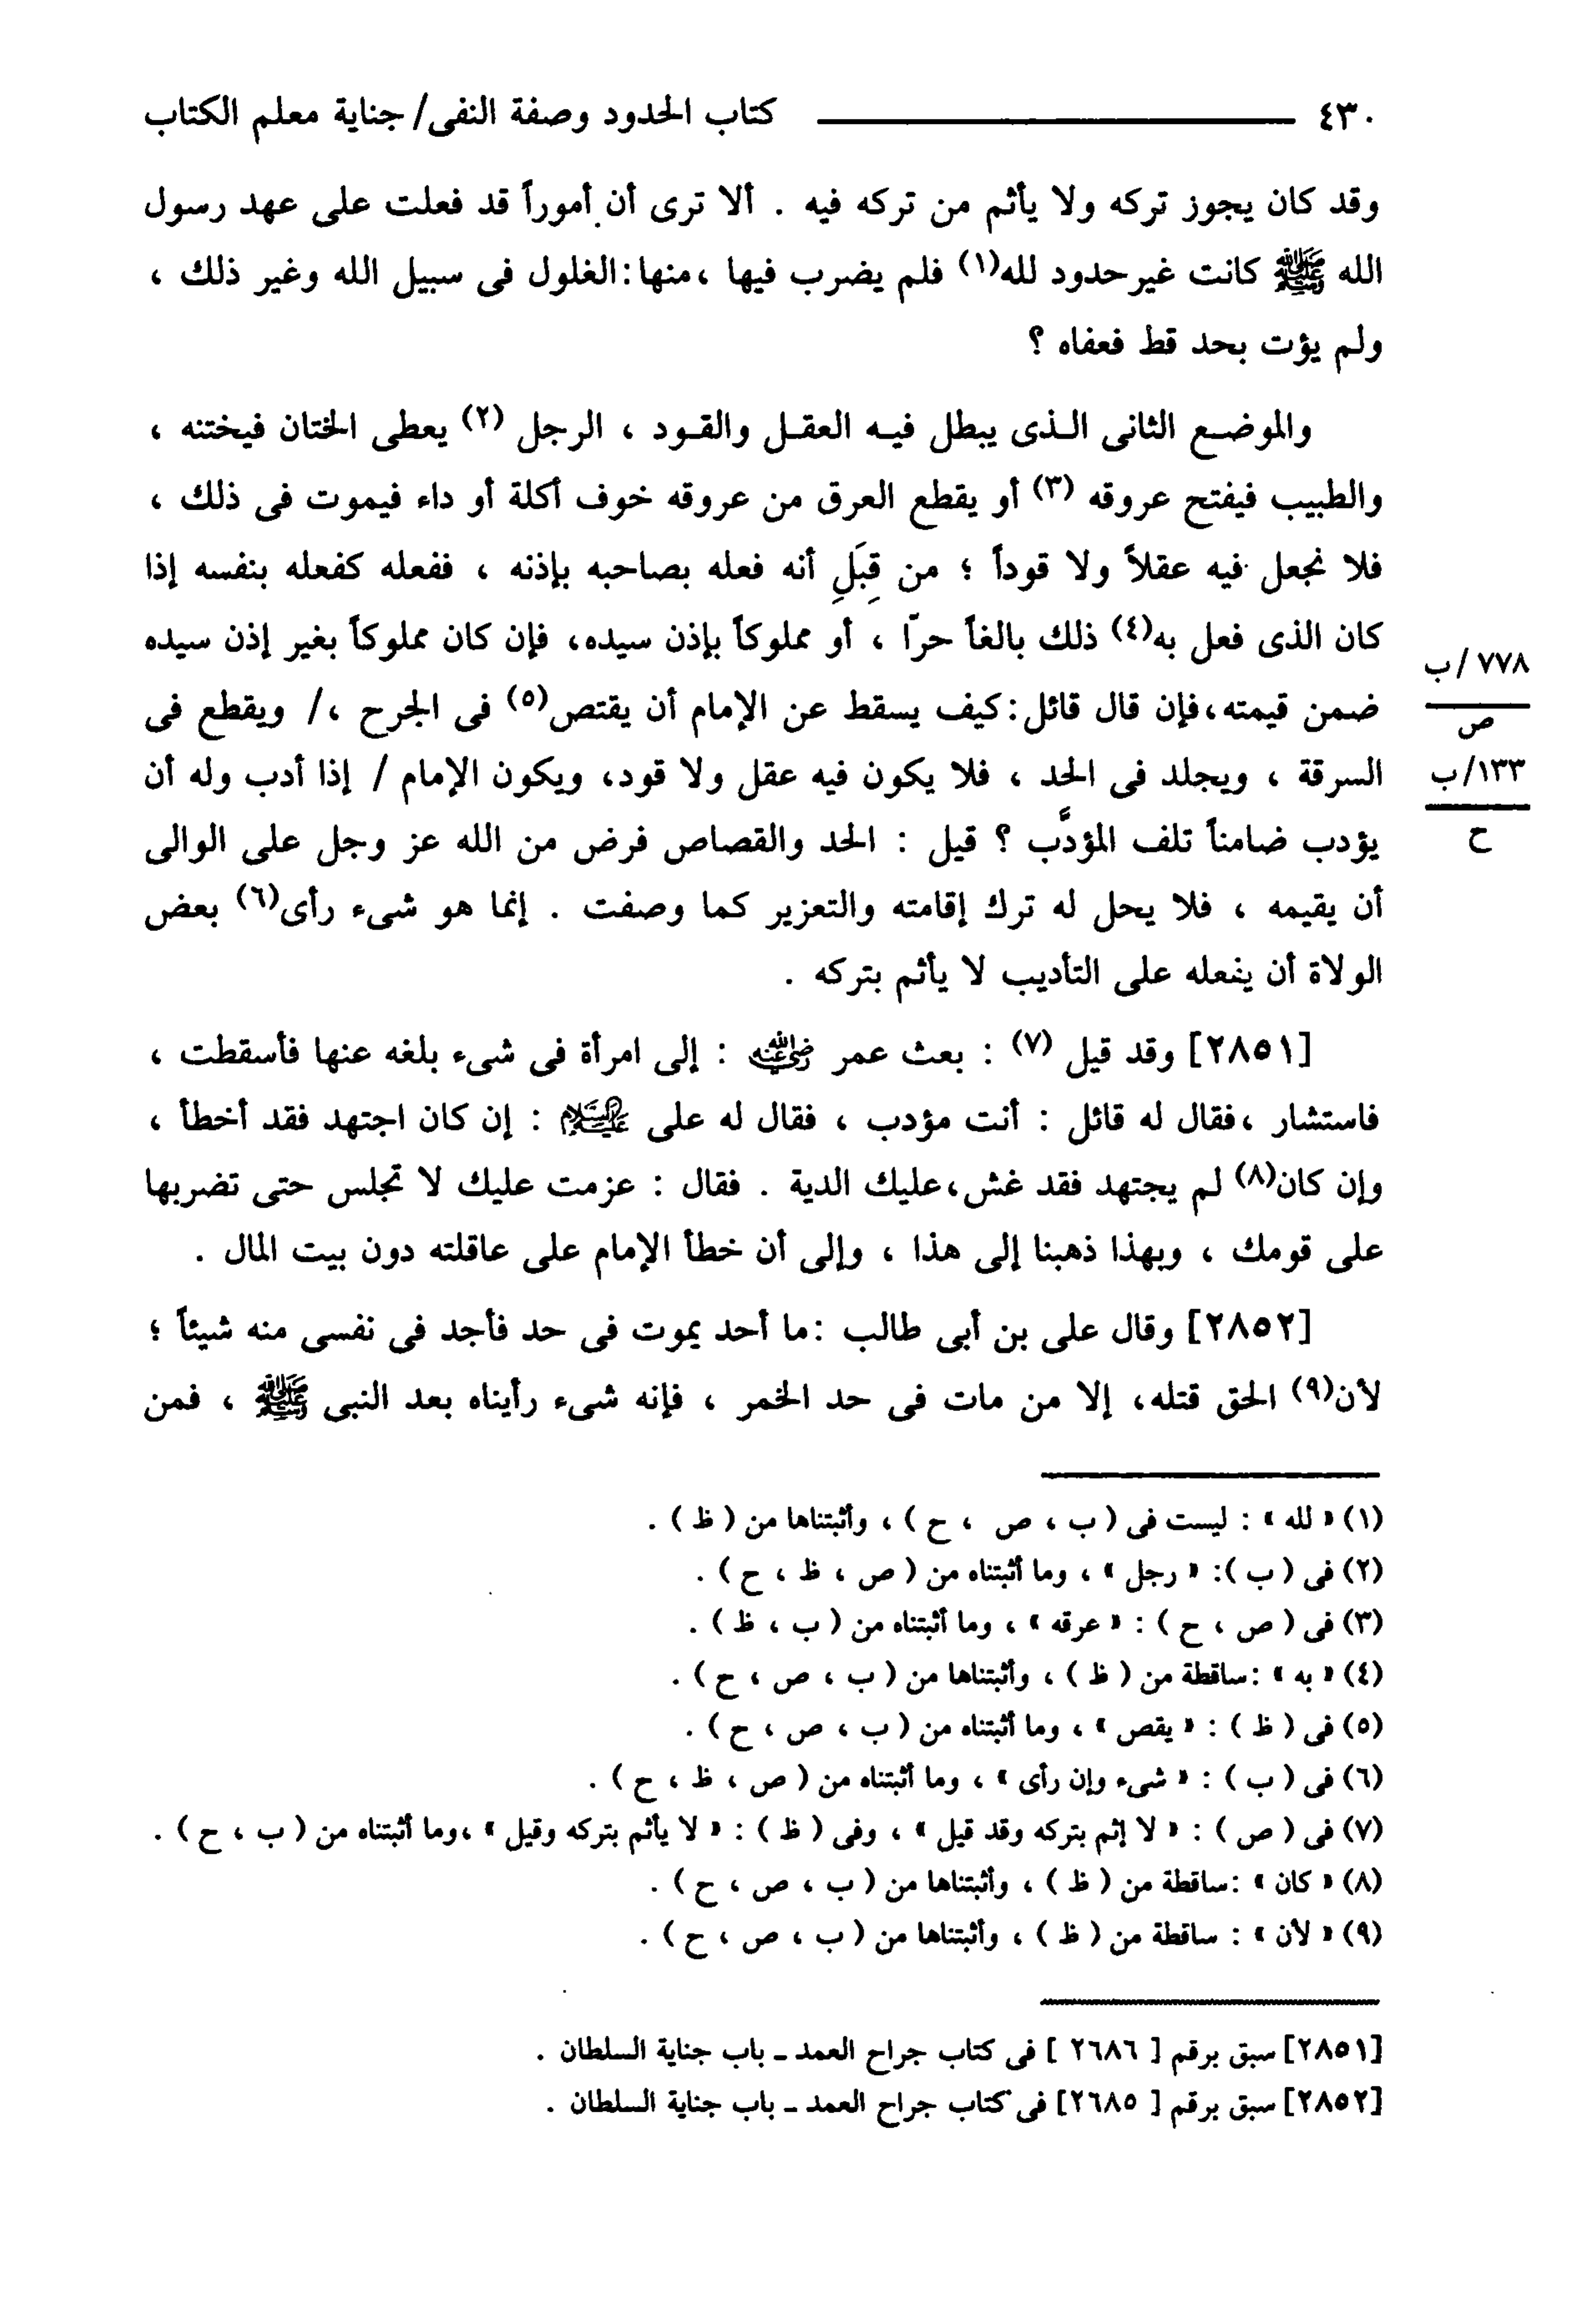 ٤٣٠ ــــــــــــــــ كتاب الحدود وصفة النفى/ جناية معلم الكتاب
وقد كان يجوز تركه ولا يأثم من تركه فيه . ألا ترى أن أموراً قد فعلت على عهد رسول
الله ﷺ كانت غيرحدود لله(١) فلم يضرب فيها ،منها:الغلول فى سبيل الله وغير ذلك ،
ولم يؤت بحد قط فعفاه ؟
والموضع الثانى الذى يبطل فيه العقل والقود ، الرجل (٢) يعطى الختان فيختنه ،
والطبيب فيفتح عروقه (٣) أو يقطع العرق من عروقه خوف أكلة أو داء فيموت فى ذلك ،
فلا نجعل فيه عقلاً ولا قوداً ؛ من قِبَلِ أنه فعله بصاحبه بإذنه ، ففعله كفعله بنفسه إذا
كان الذى فعل به(٤) ذلك بالغاً حرّا ، أو مملوكاً بإذن سيده، فإن كان مملوكاً بغير إذن سيده
٧٧٨ /ب
ضمن قيمته،فإن قال قائل:كيف يسقط عن الإمام أن يقتص(٥) فى الجرح ،/ ويقطع فى
ص
السرقة ، ويجلد فى الحد ، فلا يكون فيه عقل ولا قود، ويكون الإمام / إذا أدب وله أن
١٣٣/ب
يؤدب ضامناً تلف المؤدَّب ؟ قيل : الحد والقصاص فرض من الله عز وجل على الوالى
ح
أن يقيمه ، فلا يحل له ترك إقامته والتعزير كما وصفت . إنما هو شىء رأى(٦) بعض
الولاة أن يفعله على التأديب لا يأثم بتركه .
[٢٨٥١] وقد قيل (٧) : بعث عمر رضي الله عنه : إلى امرأة فى شىء بلغه عنها فأسقطت ،
فاستشار ،فقال له قائل : أنت مؤدب ، فقال له على عليه السلام : إن كان اجتهد فقد أخطأ ،
وإن كان(٨) لم يجتهد فقد غش،عليك الدية . فقال : عزمت عليك لا تجلس حتى تضربها
على قومك ، وبهذا ذهبنا إلى هذا ، وإلى أن خطأ الإمام على عاقلته دون بيت المال .
[٢٨٥٢] وقال على بن أبى طالب :ما أحد يموت فى حد فأجد فى نفسى منه شيئاً ؛
لأن(٩) الحق قتله، إلا من مات فى حد الخمر ، فإنه شىء رأيناه بعد النبى ﷺ ، فمن
(١) « لله » : ليست فى ( ب ، ص ، ح ) ، وأثبتناها من ( ظ ) .
(٢) فى ( ب ): « رجل » ، وما أثبتناه من ( ص ، ظ ، ح ) .
(٣) فى ( ص ، ح ) : « عرقه » ، وما أثبتناه من ( ب ، ظ ) .
(٤) « به » :ساقطة من ( ظ ) ، وأثبتناها من ( ب ، ص ، ح ) .
(٥) فى ( ظ ) : « يقص » ، وما أثبتناه من ( ب ، ص ، ح ) .
(٦) فى ( ب ) : « شىء وإن رأى » ، وما أثبتناه من ( ص ، ظ ، ح ) .
(٧) فى ( ص ) : « لا إثم بتركه وقد قيل » ، وفى ( ظ ) : « لا يأثم بتركه وقيل » ،وما أثبتناه من ( ب ، ح ) .
(٨) « كان » :ساقطة من ( ظ ) ، وأثبتناها من ( ب ، ص ، ح ) .
(٩) « لأن » : ساقطة من ( ظ ) ، وأثبتناها من ( ب ، ص ، ح ) .
[٢٨٥١] سبق برقم [ ٢٦٨٦ ] فى كتاب جراح العمد ـ باب جناية السلطان .
[٢٨٥٢] سبق برقم [ ٢٦٨٥] فى كتاب جراح العمد ـ باب جناية السلطان .